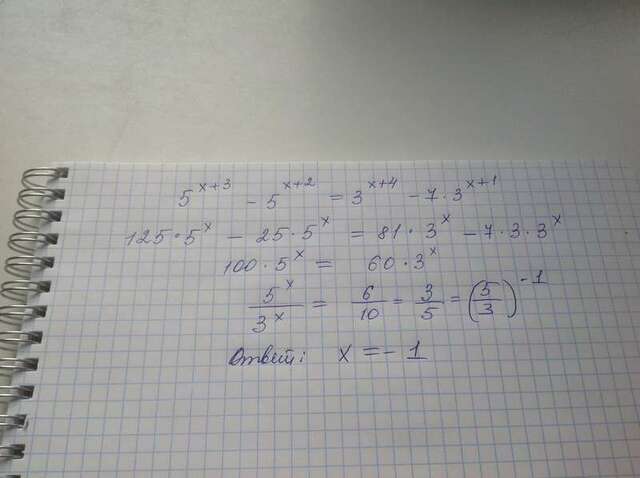 5^{x+3} - 5^{x+2} = 3^{x+4} - 7·3^{x+1}
125·5^x - 25·5^x = 81·3^x - 7·3·3^x
100·5^x = 60·3^x
5^x/3^x = 6/10 = 3/5 = (5/3)^{-1}
Ответ: x = -1